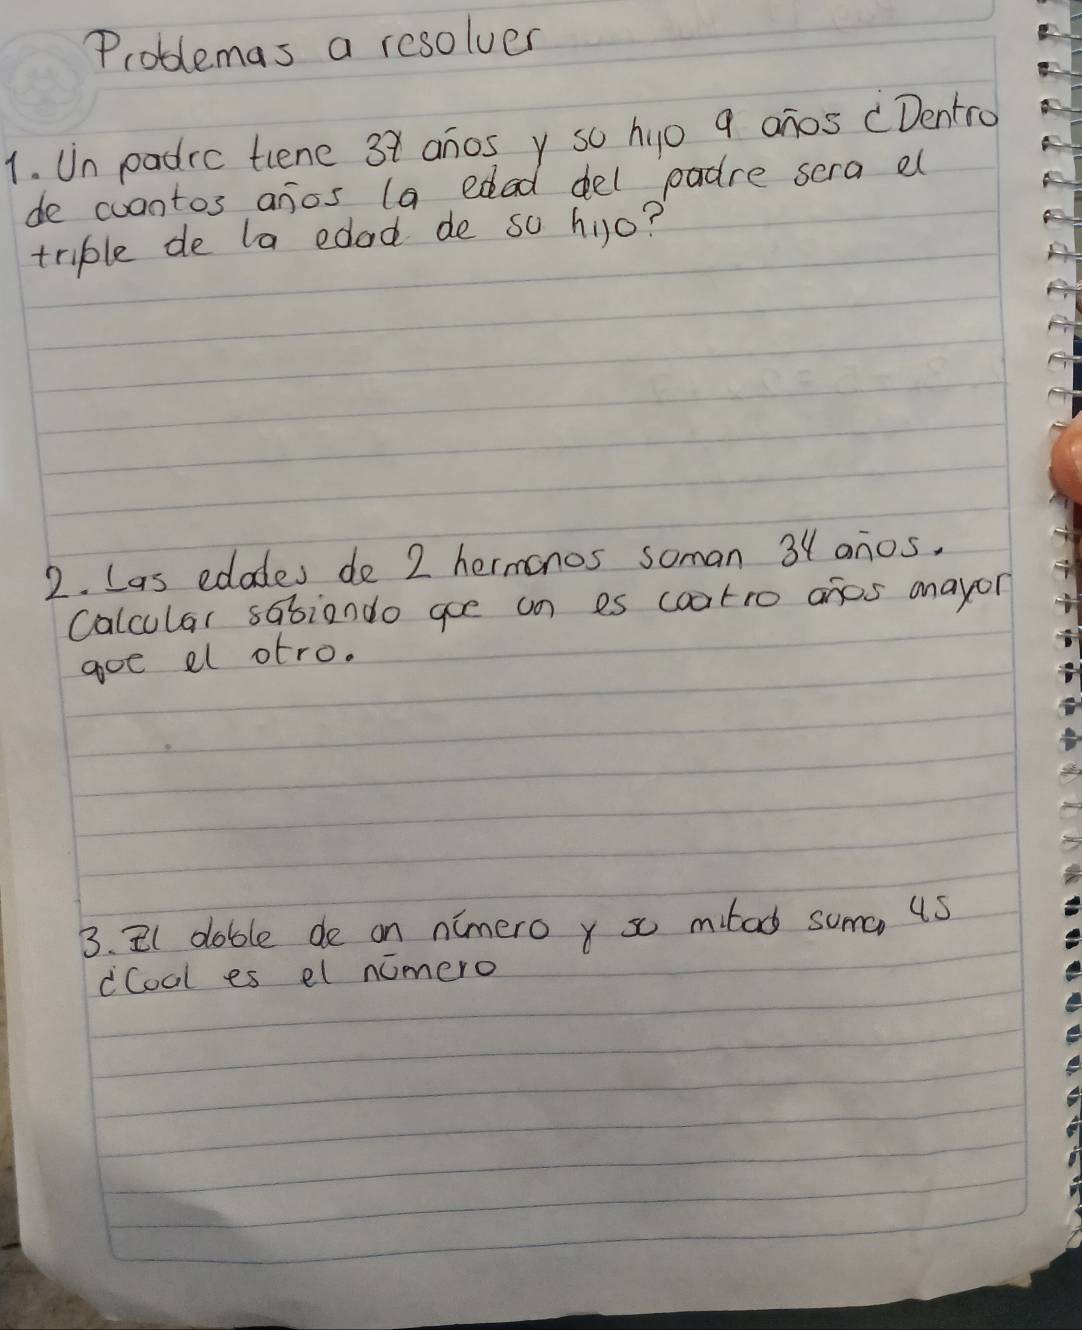 Problemas a resolver
1. Un padre tiene 37 años y so hijo 9 años ¿Dentro
de cuantos años la edad del padre sera el
triple de la edad de so hijo?
2. Las edades de 2 hermanos suman 34 años.
Calcular sabiendo que un es cuatro años mayor
que el otro.
3. El doble de un número y su mitad suman 45
¿Cual es el número